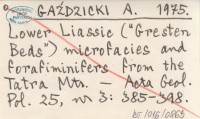 GAŹDZICKI A. 1975.
Lower Liassic ("Gresten
Beds") microfacies and
foraminifers from the
Tatra Mtn. Acta Geol.
Pol. 25, nr 3: 385-398.